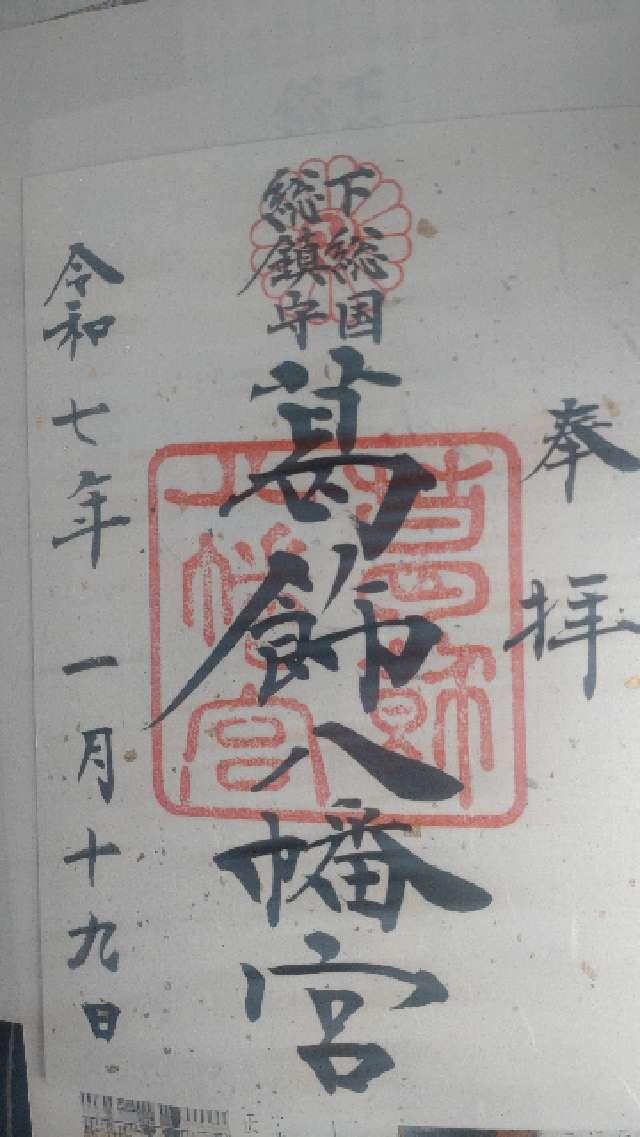 奉拝
下総国
総鎮守
葛飾八幡宮
葛飾
八幡宮
令和七年一月十九日